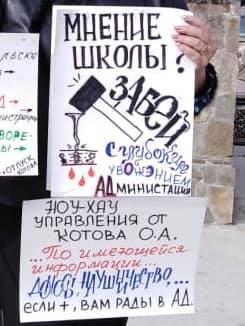 МНЕНИЕ
ШКОЛЫ?
ЗАБЕЙ
С глубоким
увОжЭнием
АДминистация
НОУ-ХАУ
УПРАВЛЕНИЯ ОТ
КОТОВА О.А.
...По имеющейся
информации...
НАУШНИЧЕСТВО,...
если +, ВАМ РАДЫ В АД.
ОТПУСК
КОТОВА